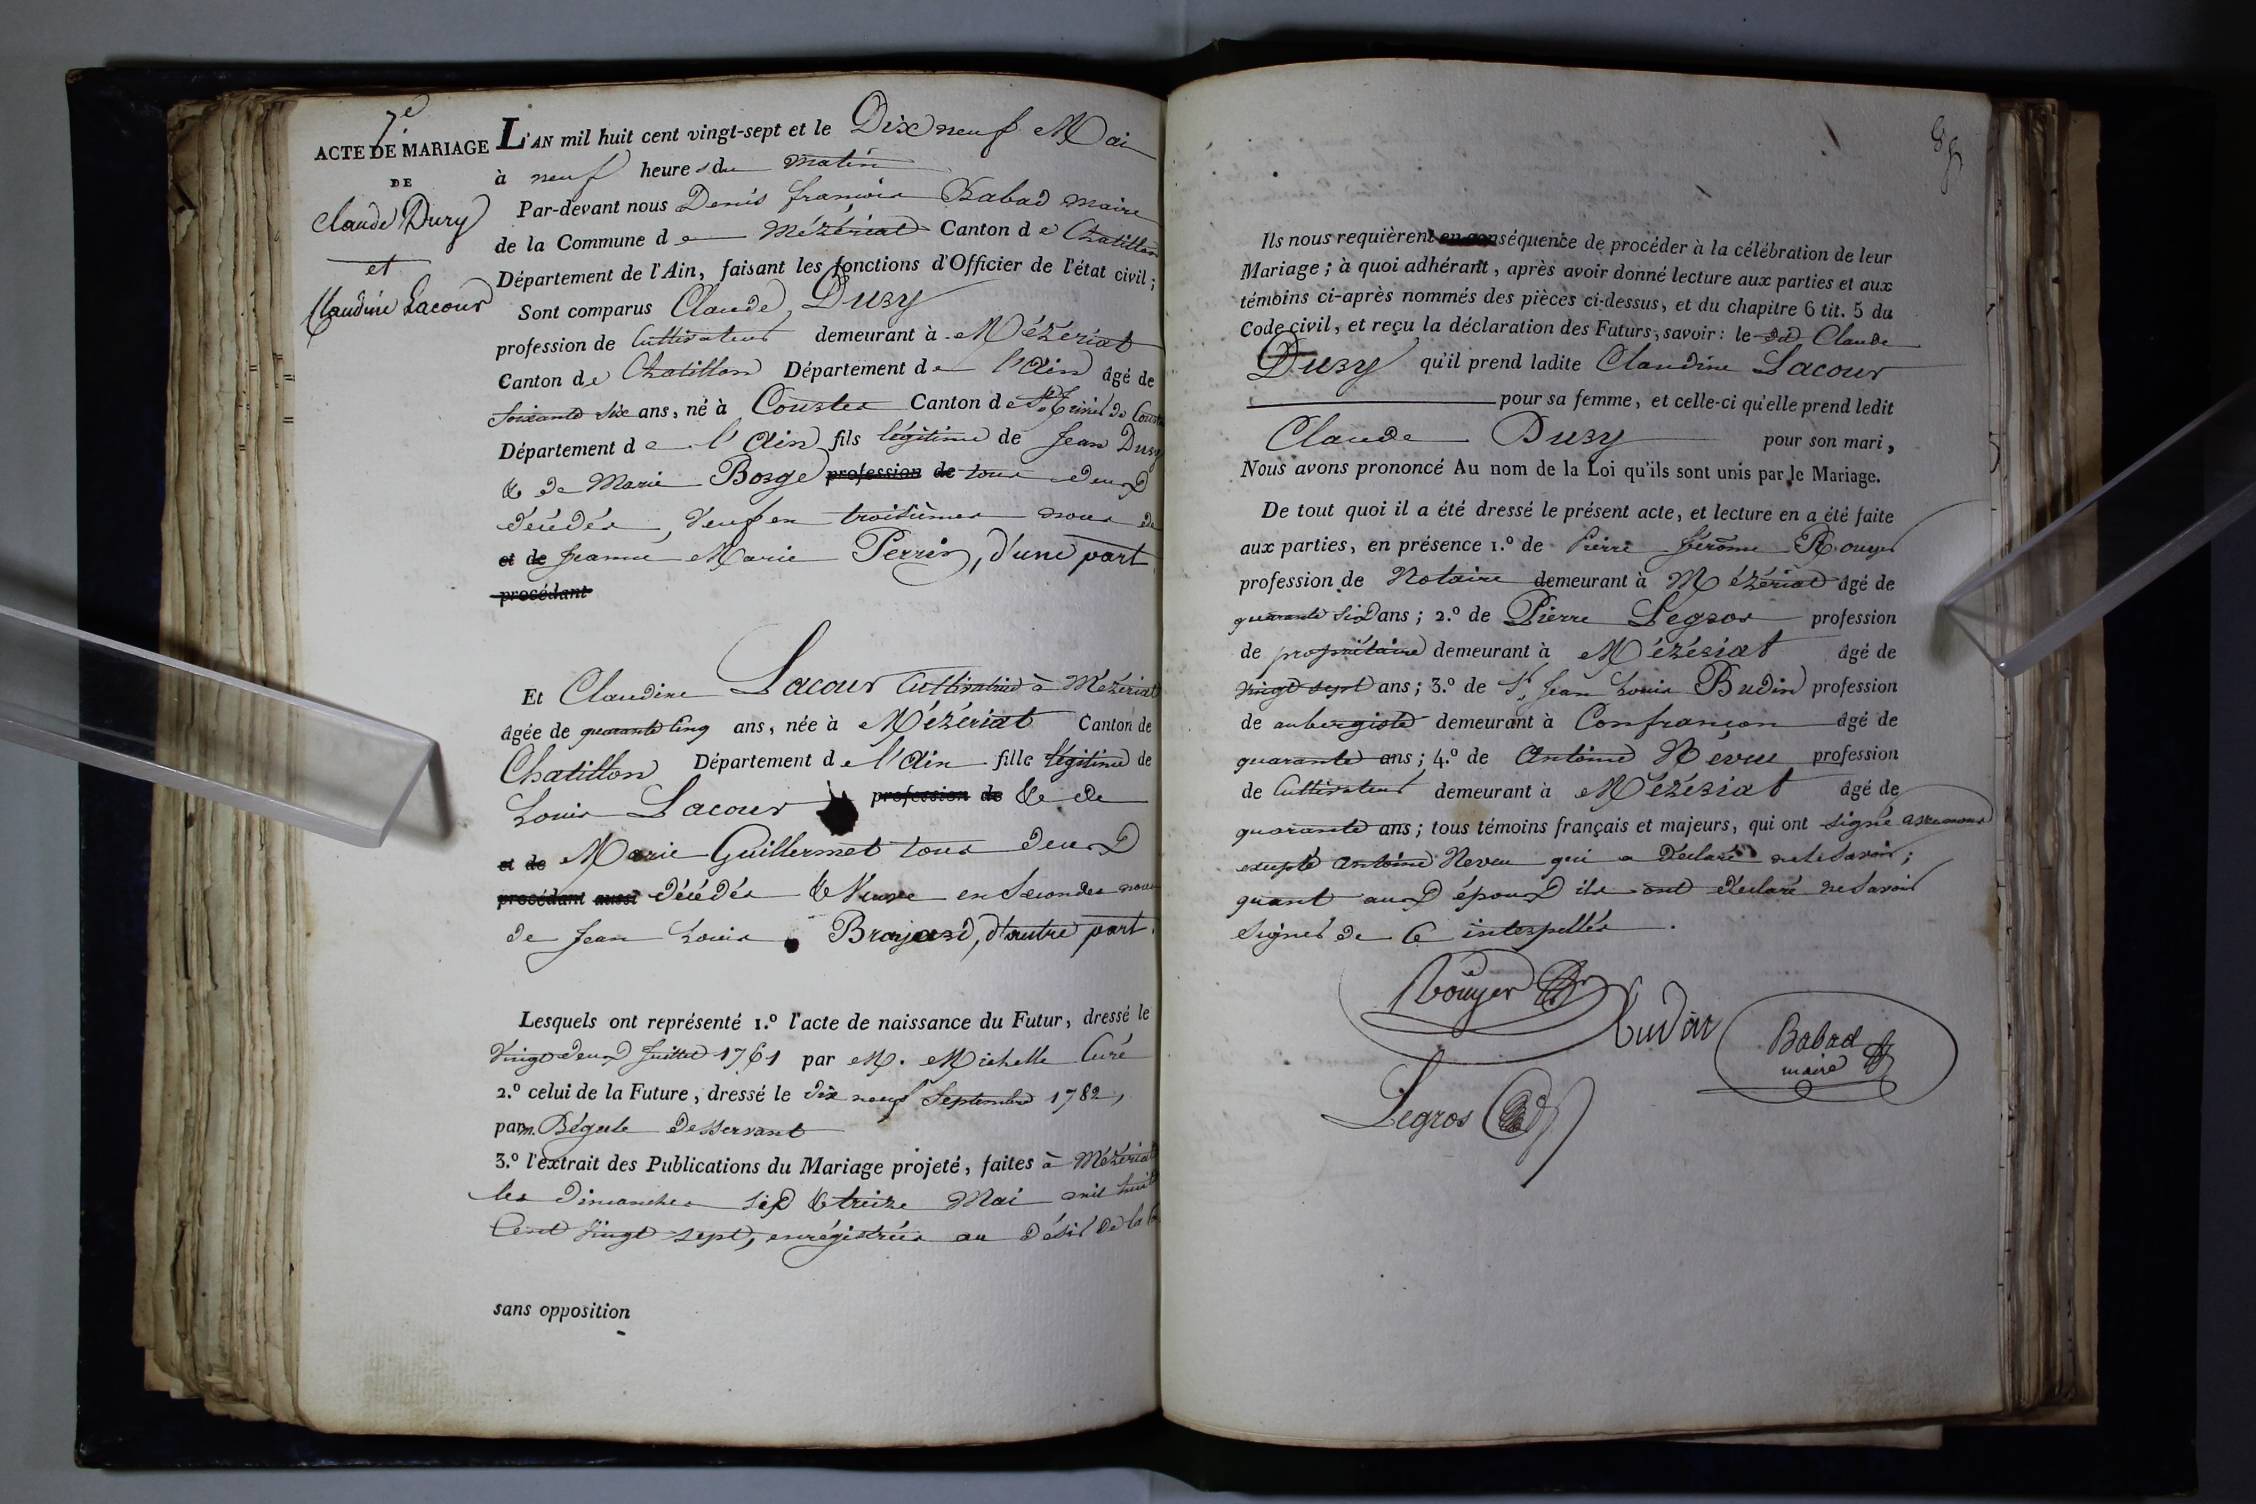 7e
ACTE DE MARIAGE
DE
Claude Dury
et
Claudine Lacour
L'AN mil huit cent vingt-sept et le Dix neuf Mai
à neuf heures du matin
Par-devant nous Denis françois Babad maire
de la Commune de Mézériat Canton de Chatillon
Département de l'Ain, faisant les fonctions d'Officier de l'état civil;
Sont comparus Claude Dury
profession de Cultivateur demeurant à Mézériat
Canton de Chatillon Département de l'Ain âgé de
soixante six ans, né à Coustes Canton de
Département de l'Ain fils légitime de Jean Dury
& de Marie Borge profession de tous deux
décédés, veuf en troisièmes noces de
et de Jeanne Marie Perrin, d'une part
procédant
Et Claudine Lacour Cultivatrice à Mézériat
âgée de quarante cinq ans, née à Mézériat Canton de
Chatillon Département de l'Ain fille légitime de
Louis Lacour profession de & de
et de Marie Guillermet tous deux
procédant aussi décédés & Veuve en secondes noces
de Jean Louis Brayard, d'autre part.
Lesquels ont représenté 1.º l'acte de naissance du Futur, dressé le
vingt deux Juillet 1761 par M. Michelle Curé
2.º celui de la Future, dressé le dix neuf Septembre 1782,
par m. Bégule desservant
3.º l'extrait des Publications du Mariage projeté, faites à Mézériat
les dimanches six & treize Mai mil huit
Cent vingt sept, enrégistrées au désir de la
sans opposition
Ils nous requièrent en conséquence de procéder à la célébration de leur
Mariage; à quoi adhérant, après avoir donné lecture aux parties et aux
témoins ci-après nommés des pièces ci-dessus, et du chapitre 6 tit. 5 du
Code civil, et reçu la déclaration des Futurs, savoir: le dit Claude
Dury qu'il prend ladite Claudine Lacour
pour sa femme, et celle-ci qu'elle prend ledit
Claude Dury pour son mari,
Nous avons prononcé Au nom de la Loi qu'ils sont unis par le Mariage.
De tout quoi il a été dressé le présent acte, et lecture en a été faite
aux parties, en présence 1.º de Pierre Jérôme Rouyer
profession de Notaire demeurant à Mézériat âgé de
quarante six ans; 2.º de Pierre Legros profession
de propriétaire demeurant à Mézériat âgé de
vingt sept ans; 3.º de Sr. Jean Louis Budin profession
de aubergiste demeurant à Confrançon âgé de
quarante ans; 4.º de Antoine Neveu profession
de Cultivateur demeurant à Mézériat âgé de
quarante ans; tous témoins français et majeurs, qui ont signé avec nous
excepté Antoine Neveu qui a déclaré ne le savoir;
quant aux époux ils ont déclaré ne savoir
signer de ce interpellés.
Rouyer
Budin
Babad
maire
Legros